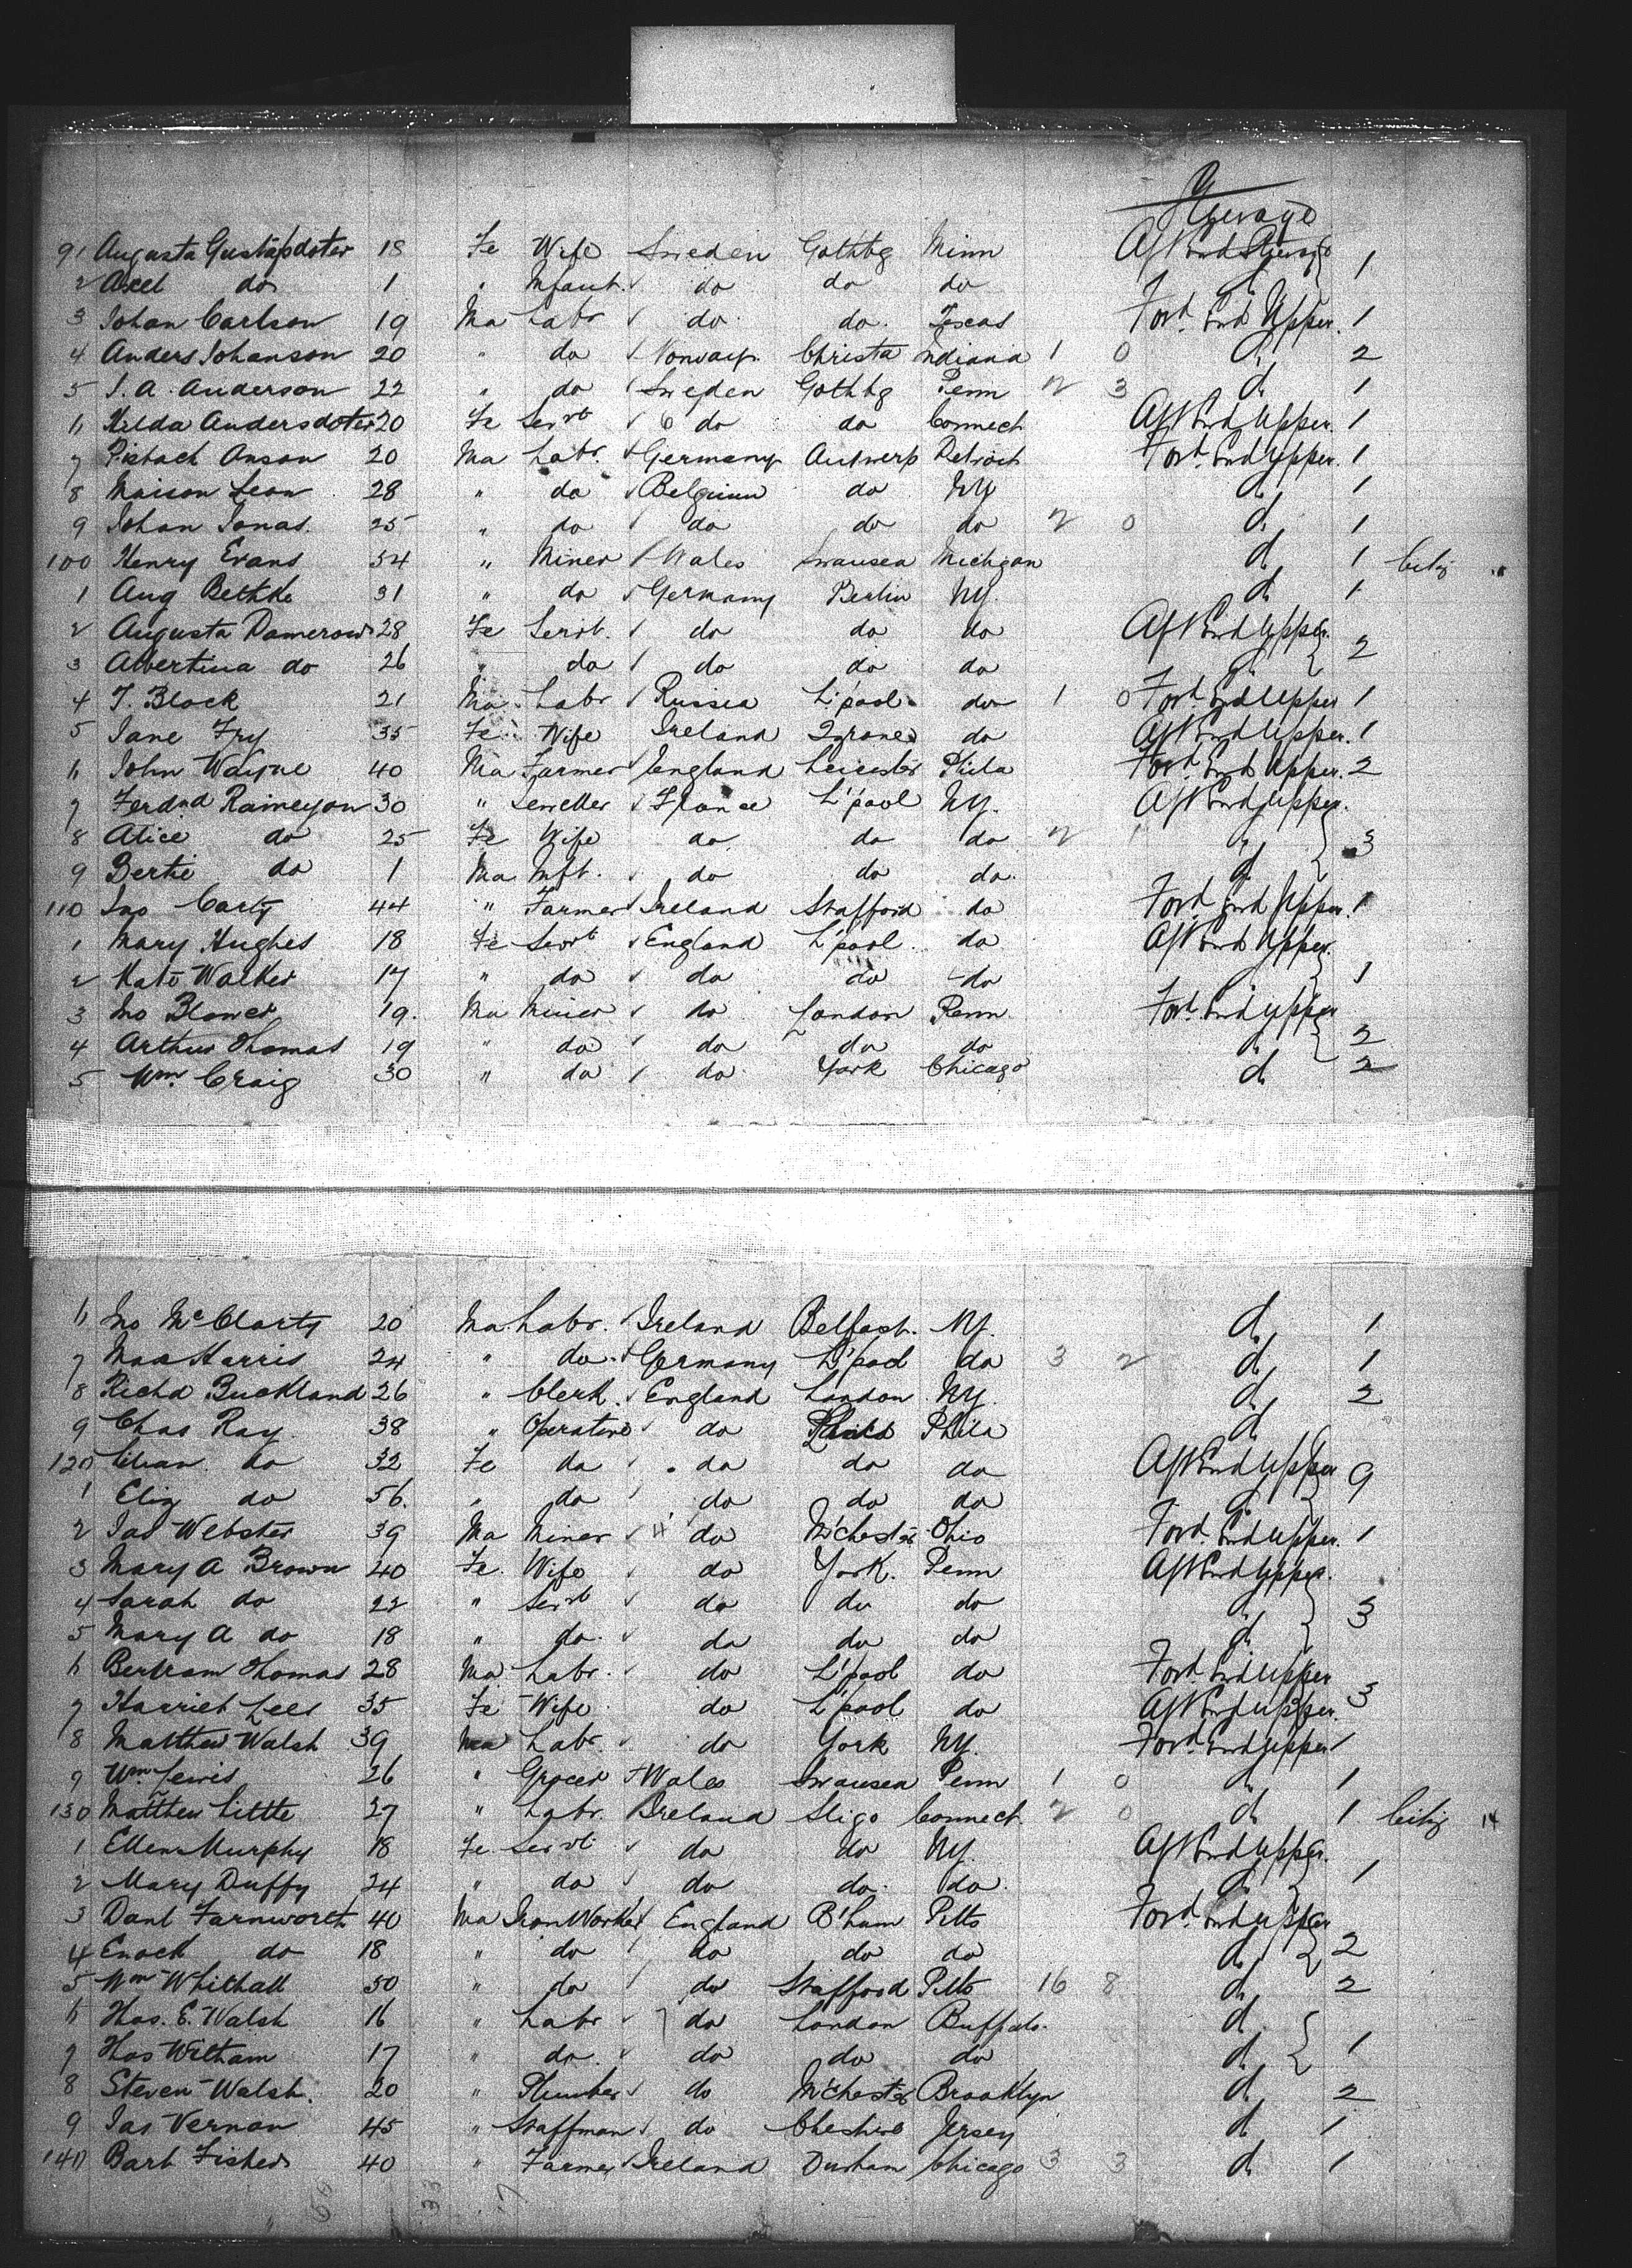 Steerage
91 Augusta Gustafsdoter 18 Fe Wife Sweden Gothbg Minn Aft End Steerage 1
2 Axel do 1 " Infant do do do do
3 Johan Carlson 19 Ma Labr do do Texas Ford End Upper. 1
4 Anders Johanson 20 " do Norway Christa Indiana 1 0 do 2
5 J. A. Anderson 22 " do Sweden Gothbg Penn 2 3 do 1
6 Hilda Andersdoter 20 Fe Servt do do Connect Aft End Upper. 1
7 Anson 20 Ma Labr. Germany Antwerp Detroit Ford End Upper. 1
8 Maison Leon 28 " do Belgium do NY do 1
9 Johan Jonas. 25 " do do do do 2 0 do 1
100 Henry Evans 34 " Miner Wales Swansea Michigan do 1 Citiz
1 Aug Bethke 31 " do Germany Berlin NY. do 1
2 Augusta Damerow 28 Fe Servt. do do do Aft End Upper. 2
3 Albertina do 26 " do do do do do
4 J. Block 21 Ma Labr Russia L'pool do 1 0 Ford End Upper 1
5 Jane Fry 35 Fe Wife Ireland Tyrone do Aft End Upper. 1
6 John Wayne 40 Ma Farmer England Leicester Phila Ford End Upper. 2
7 Ferdnd Raineyon 30 " Jeweller France L'pool NY. Aft End Upper.
8 Alice do 25 Fe Wife do do do 2 1 do 3
9 Bertie do 1 Ma Inft. do do do. do
110 Jno Carty 44 " Farmer Ireland Stafford do Ford End Upper. 1
1 Mary Hughes 18 Fe Servt England L'pool do Aft End Upper.
2 Kate Walker 17 " do do do do do 1
3 Jno Blower 19. Ma Miner do London Penn. Ford End Upper
4 Arthur Thomas 19 " do do do do do 2
5 Wm. Craig 30 " do do York Chicago do 2
6 Jno McClarty 20 Ma Labr. Ireland Belfast. NY. do 1
7 Max Harris 24 " do Germany L'pool do 3 2 do 1
8 Richd Buckland 26 " Clerk England London NY. do 2
9 Chas Ray 38 " Operative do Phila do
120 do 32 Fe do do do do Aft End Upper 9
1 Eliz do 56. " do do do do do
2 Jas Webster 39 Ma Miner do M'chester Ohio Ford End Upper. 1
3 Mary A Brown 40 Fe. Wife do York. Penn Aft End Upper.
4 Sarah do 22 " Servt do do do do 3
5 Mary A do 18 " do. do do do do
6 Bertram Thomas 28 Ma Labr. do L'pool do Ford End Upper
7 Harriet Lees 35 Fe Wife do L'pool do Aft End Upper. 3
8 Matthew Walsh 39 Ma Labr. do York NY. Ford End Upper 1
9 Wm Lewis 26 " Grocer Wales Swansea Penn 1 0 do 1
130 Matthew Little 27 " Labr. Ireland Sligo Connect. 2 0 do 1 Citiz 14
1 Ellen Murphy 18 Fe Servt do do NY. Aft End Upper.
2 Mary Duffy 24 " do do do. do. do 1
3 Danl Farnworth 40 Ma Iron Worker England B'ham Pitts Ford End Upper
4 Enoch do 18 " do do do do do 2
5 Wm Whithall 50 " do do Stafford Pitts 16 8 do 2
6 Thos. E. Walsh 16 " Labr do London Buffalo. do
7 Thos Witham 17 " do. do do do do 1
8 Steven Walsh. 20 " Plumber do M'chester Brooklyn do 2
9 Jas Vernon 45 " Staffman do Cheshire Jersey do 1
140 Bart Fisher 40 " Farmer Ireland Durham Chicago 3 3 do 1
33 17